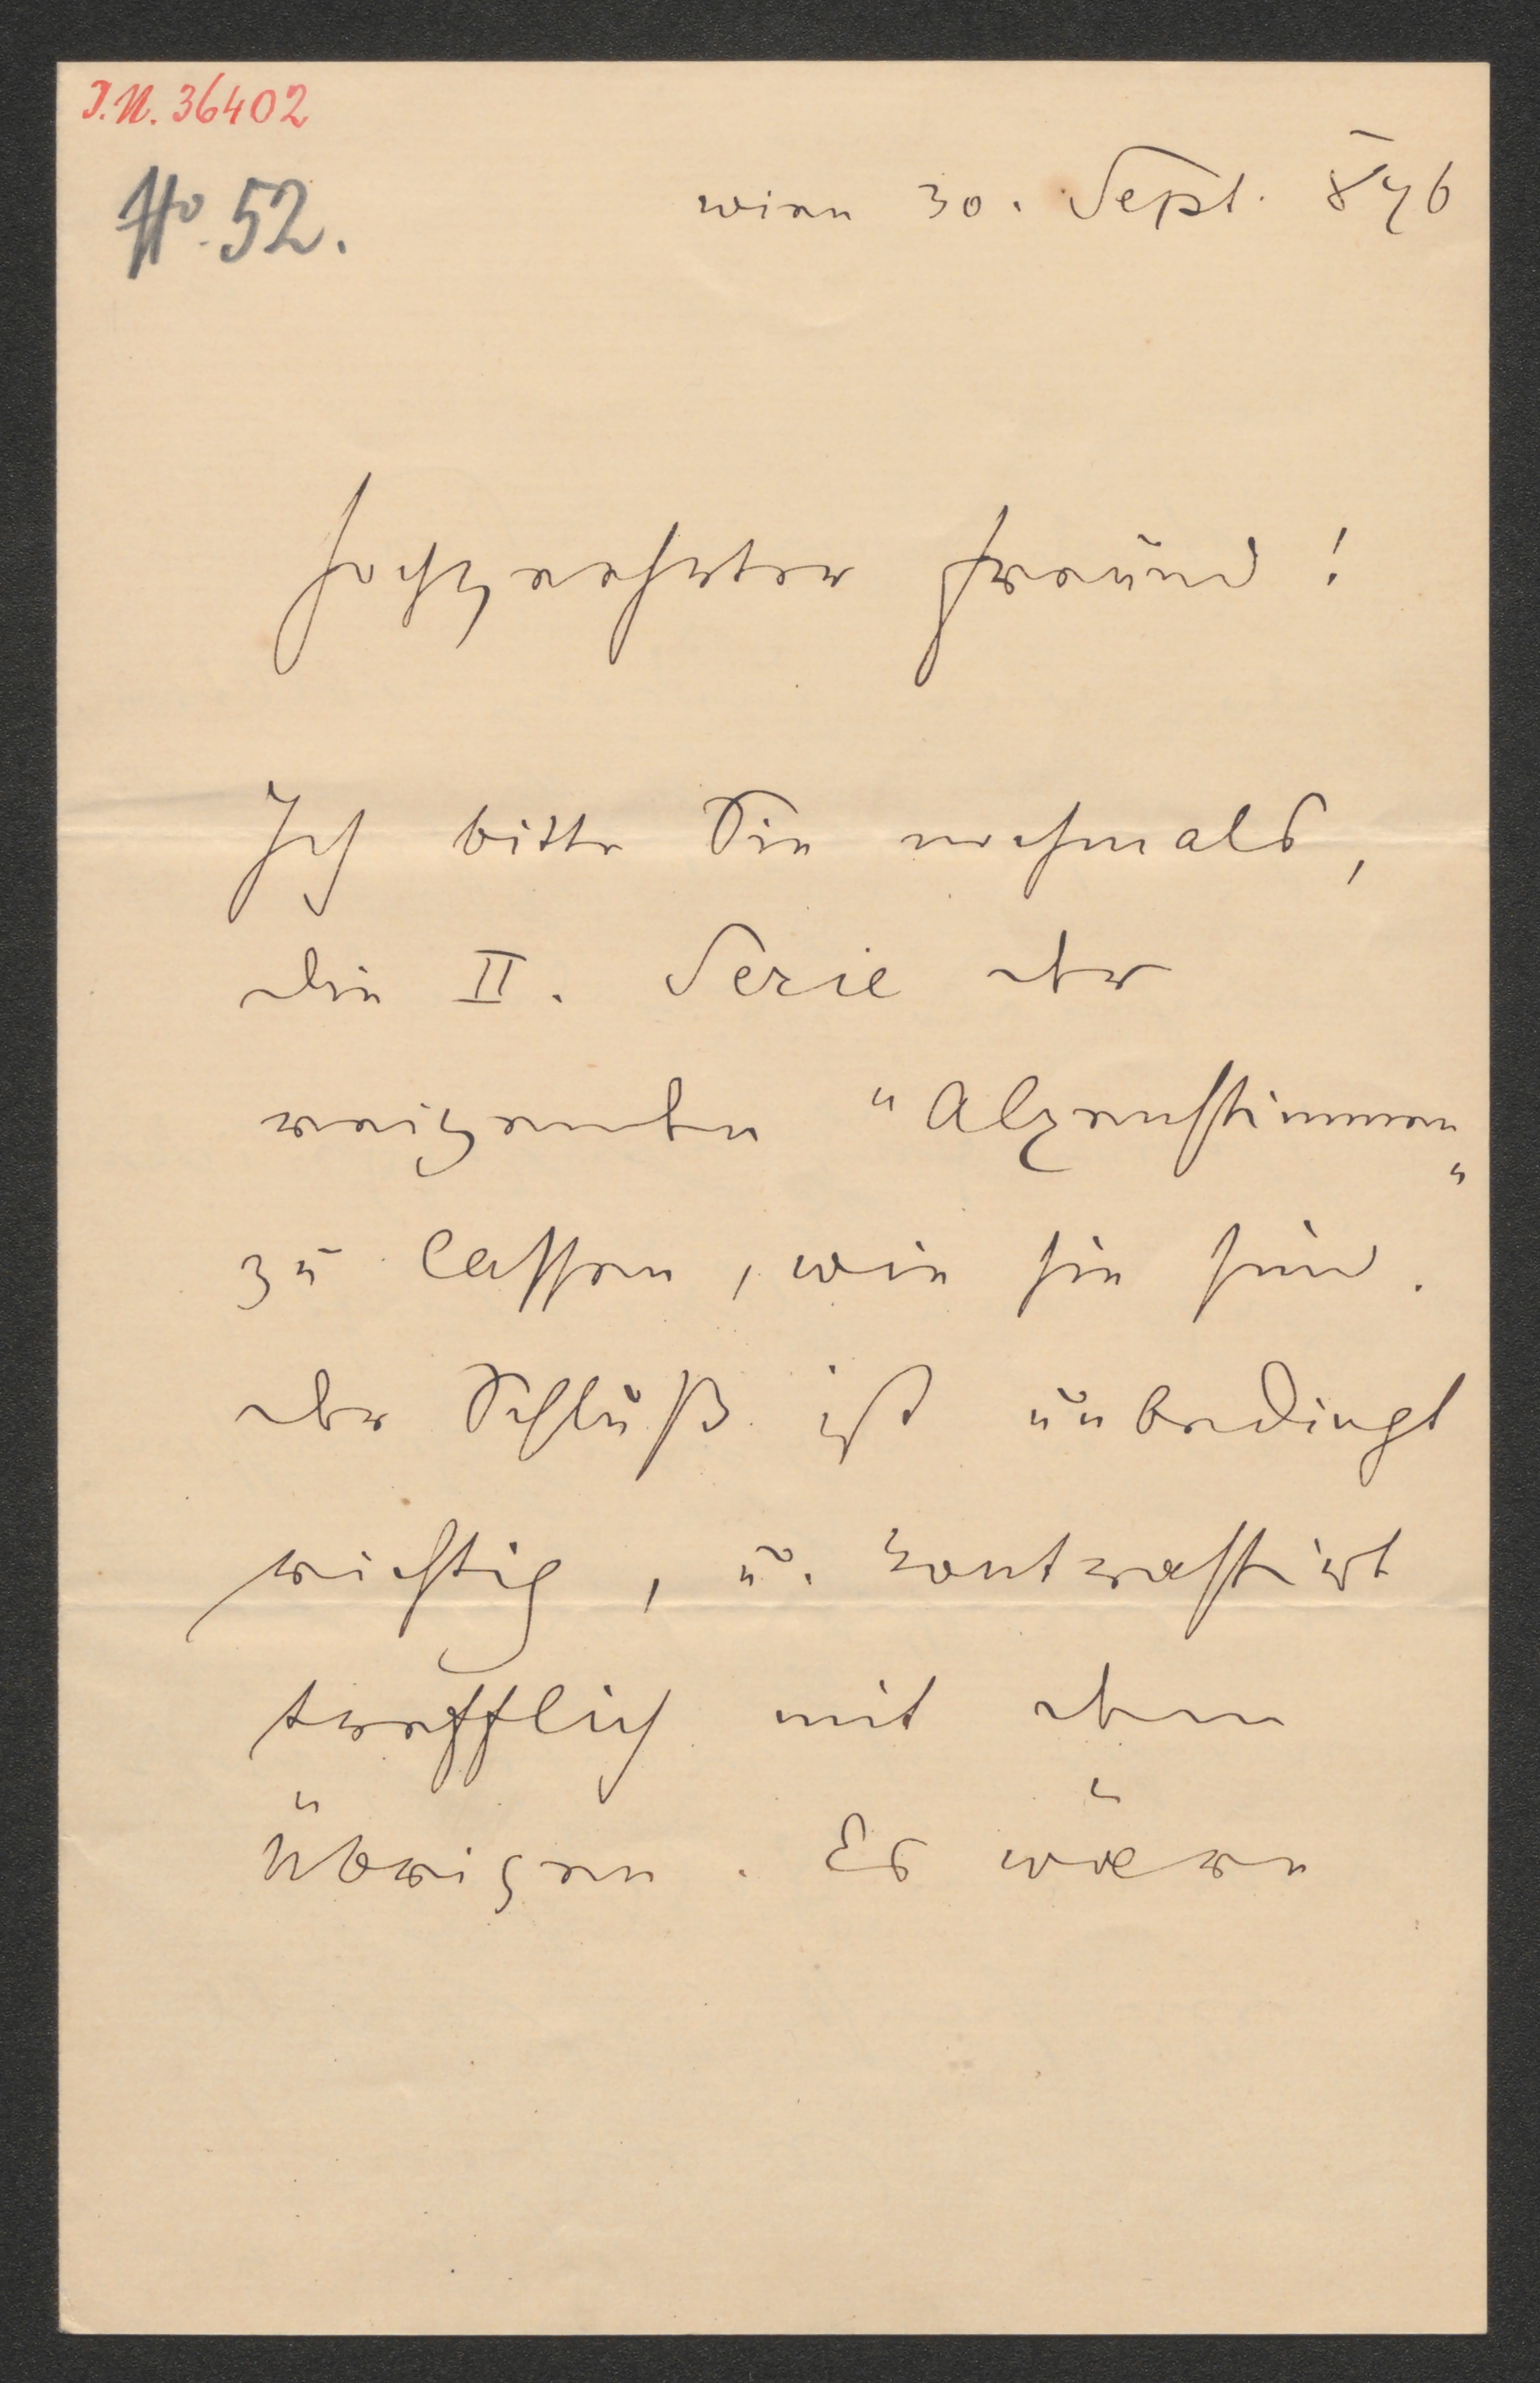 I.N. 36402
No. 52.
Wien 30. Sept. 876
Hochgeehrter Freund!
Ich bitte Sie nochmals,
die II. Serie der
reizenden "Alpenstimmen"
zu lassen, wie sie sind.
Der Schluß ist unbedingt
richtig, u. kontrastirt
trefflich mit dem
Übrigen. Es wäre